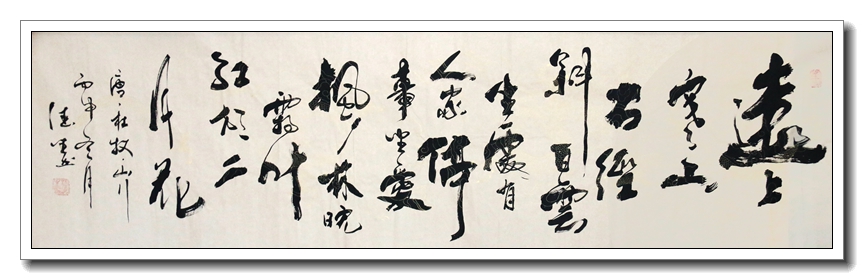 遠上
寒山
石徑
斜白雲
生處有
人家停
車坐愛
楓林晚
霜叶
紅於二
月花
唐杜牧山行
丙申冬月